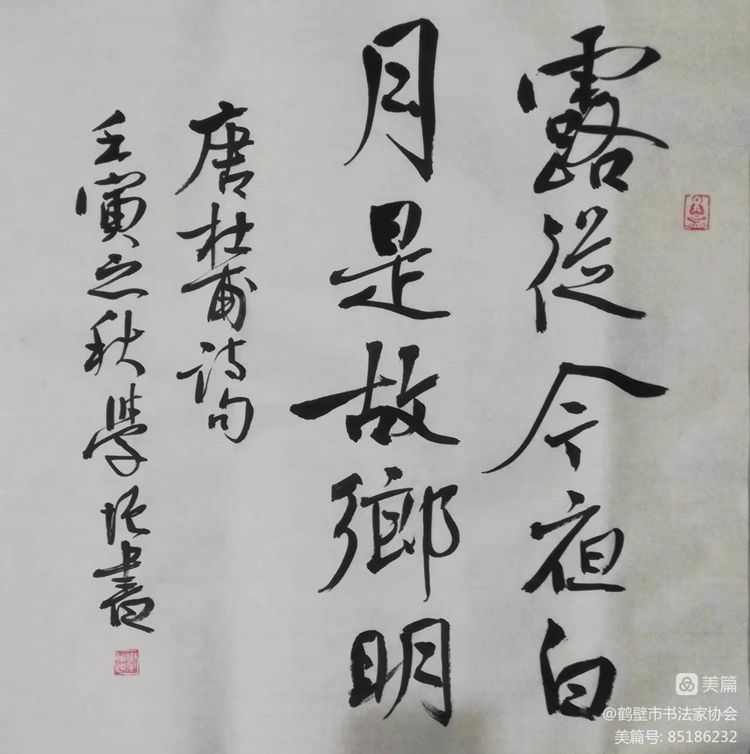 露從今夜白
月是故鄉明
唐杜甫詩句
壬寅之秋學 書
美篇
@鹤壁市书法家协会
美篇号: 85186232